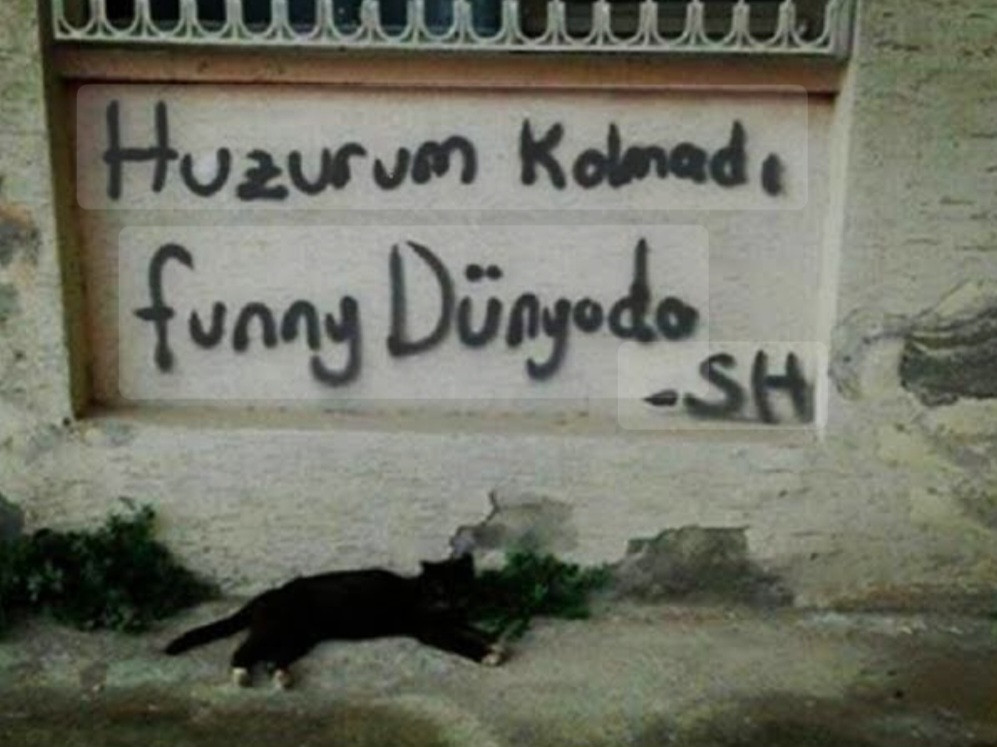 Huzurum Kalmadı
funny Dünyada
-SH